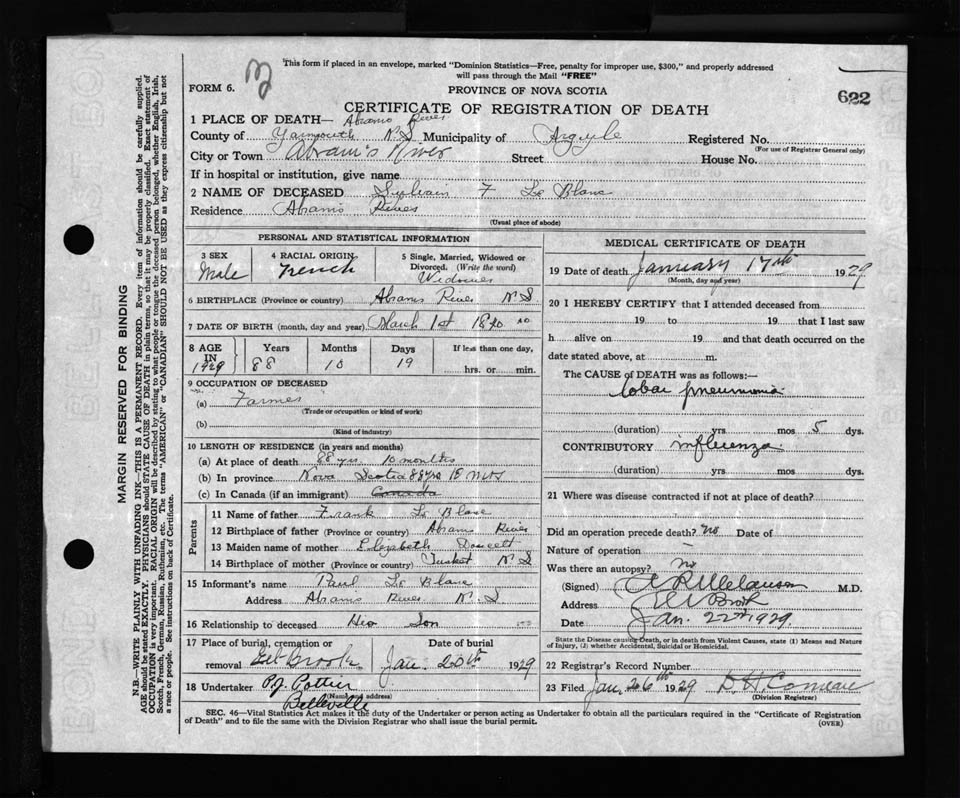 This form if placed in an envelope, marked "Dominion Statistics—Free, penalty for improper use, $300," and properly addressed
will pass through the Mail "FREE"
FORM 6.
PROVINCE OF NOVA SCOTIA
622
CERTIFICATE OF REGISTRATION OF DEATH
1 PLACE OF DEATH— Abrams River
County of Yarmouth N S Municipality of Argyle Registered No.
(For use of Registrar General only)
City or Town Abram's River Street House No.
If in hospital or institution, give name
2 NAME OF DECEASED Sylvain F Le Blanc
Residence Abrams River
(Usual place of abode)
PERSONAL AND STATISTICAL INFORMATION
3 SEX Male
4 RACIAL ORIGIN French
5 Single, Married, Widowed or Divorced. (Write the word) Widower
6 BIRTHPLACE (Province or country) Abrams River N S
7 DATE OF BIRTH (month, day and year) March 1st 1840
8 AGE IN 1929 Years 88 Months 10 Days 19 If less than one day, hrs. or min.
9 OCCUPATION OF DECEASED
(a) Farmer
(Trade or occupation or kind of work)
(b)
(Kind of industry)
10 LENGTH OF RESIDENCE (in years and months)
(a) At place of death 88 yrs. 10 months
(b) In province Nova Scotia 88 yrs 10 mts
(c) In Canada (if an immigrant) Canada
Parents
11 Name of father Frank Le Blanc
12 Birthplace of father (Province or country) Abrams River
13 Maiden name of mother Elizabeth Doucett
14 Birthplace of mother (Province or country) Tusket N S
15 Informant's name Paul Le Blanc
Address Abrams River N. S
16 Relationship to deceased His Son
17 Place of burial, cremation or removal Eel Brook
Date of burial Jan. 20th 1929
18 Undertaker P J Pottier
(Name and address)
Belleville
MEDICAL CERTIFICATE OF DEATH
19 Date of death January 17th 1929
(Month, day and year)
20 I HEREBY CERTIFY that I attended deceased from
19 to 19 that I last saw
h alive on 19 and that death occurred on the
date stated above, at m.
The CAUSE of DEATH was as follows:—
lobar pneumonia
(duration) yrs mos 5 dys.
CONTRIBUTORY influenza
(duration) yrs mos dys.
21 Where was disease contracted if not at place of death?
Did an operation precede death? no Date of
Nature of operation —
Was there an autopsy? no
(Signed) M.D.
Address
Date Jan. 22nd 1929.
State the Disease causing Death, or in death from Violent Causes, state (1) Means and Nature
of Injury, (2) whether Accidental, Suicidal or Homicidal.
22 Registrar's Record Number
23 Filed Jan. 26th 1929 Comeau
(Division Registrar)
SEC. 46—Vital Statistics Act makes it the duty of the Undertaker or person acting as Undertaker to obtain all the particulars required in the "Certificate of Registration
of Death" and to file the same with the Division Registrar who shall issue the burial permit.
(OVER)
MARGIN RESERVED FOR BINDING
N.B.—WRITE PLAINLY WITH UNFADING INK—THIS IS A PERMANENT RECORD. Every item of information should be carefully supplied.
AGE should be stated EXACTLY. PHYSICIANS should STATE CAUSE OF DEATH in plain terms, so that it may be properly classified. Exact statement of
OCCUPATION is very important. RACIAL ORIGIN will be described by stating to what people or tongue the deceased person belonged, whether English, Irish,
Scotch, French, German, Russian, Ruthenian, etc. The terms "AMERICAN" or "CANADIAN" SHOULD NOT BE USED as they express citizenship but not
a race or people. See instructions on back of Certificate.